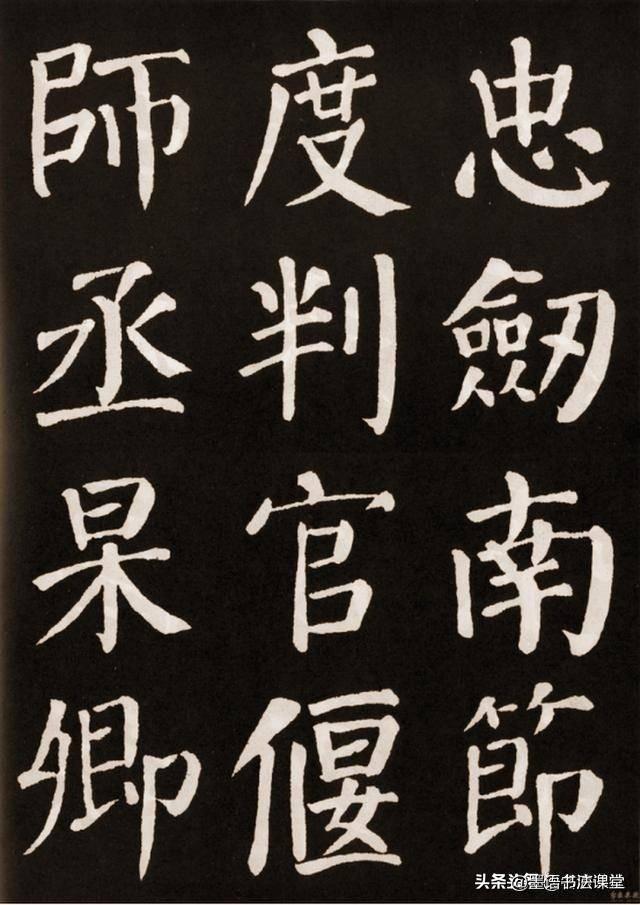 忠劒南節
度判官偃
師丞杲卿
头条 @墨语书法课堂